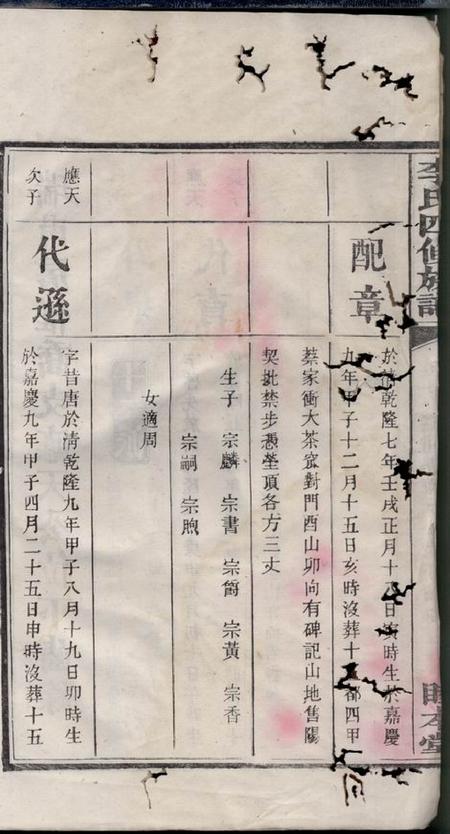 李氏四修族譜
配章
於清乾隆七年壬戌正月十日寅時生於嘉慶
九年甲子十二月十五日亥時沒葬十都四甲
蔡家衝大茶窩對門酉山卯向有碑記山地售陽
契批禁步憑塋頂各方三丈
生子 宗麟 宗書 宗筒 宗黃 宗香
宗嗣 宗煦
女適周
應天
次子
代遜
字昔唐於清乾隆九年甲子八月十九日卯時生
於嘉慶九年甲子四月二十五日申時沒葬十五
本堂